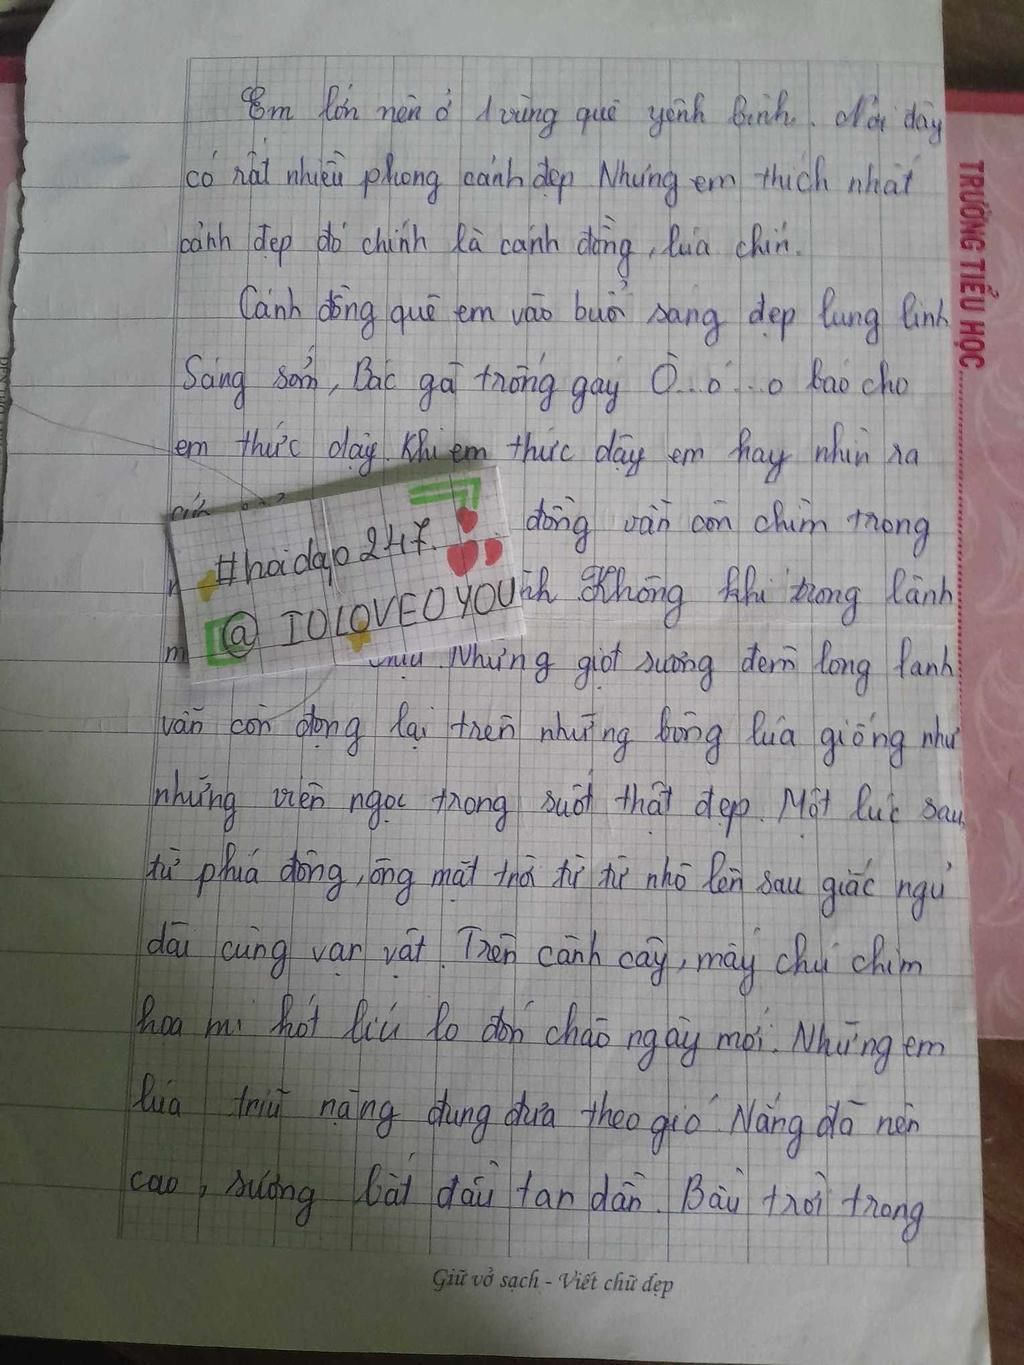 Em lớn nên ở 1 vùng quê yênh bình. Nơi đây
có rất nhiều phong cảnh đẹp Nhưng em thích nhất
cảnh đẹp đó chính là cánh đồng, lúa chín.
Cánh đồng quê em vào buổi sáng đẹp lung linh
Sáng sớm, Bác gà trống gáy Ò...ó...o báo cho
em thức dạy. Khi em thức dậy em hay nhìn ra
đồng vẫn còn chìm trong
#hoidap247.
nh. Không khí trong lành
@ IOLOVEOYOU
m chịu. Những giọt sương đêm long lanh
vẫn còn đọng lại trên những bông lúa giống như
những viên ngọc trong suốt thật đẹp. Một lúc sau,
từ phiá đông, ông mặt trời từ từ nhô lên sau giấc ngủ
dài cùng vạn vật. Trên cành cây, mấy chú chim
hoa mi hót líu lo đón chào ngày mới. Những em
lúa triũ nặng đung đưa theo gió. Nắng đã nên
cao, sương bắt đầu tan dần. Bầu trời trong
Giữ vở sạch - Viết chữ đẹp
TRƯỜNG TIỂU HỌC